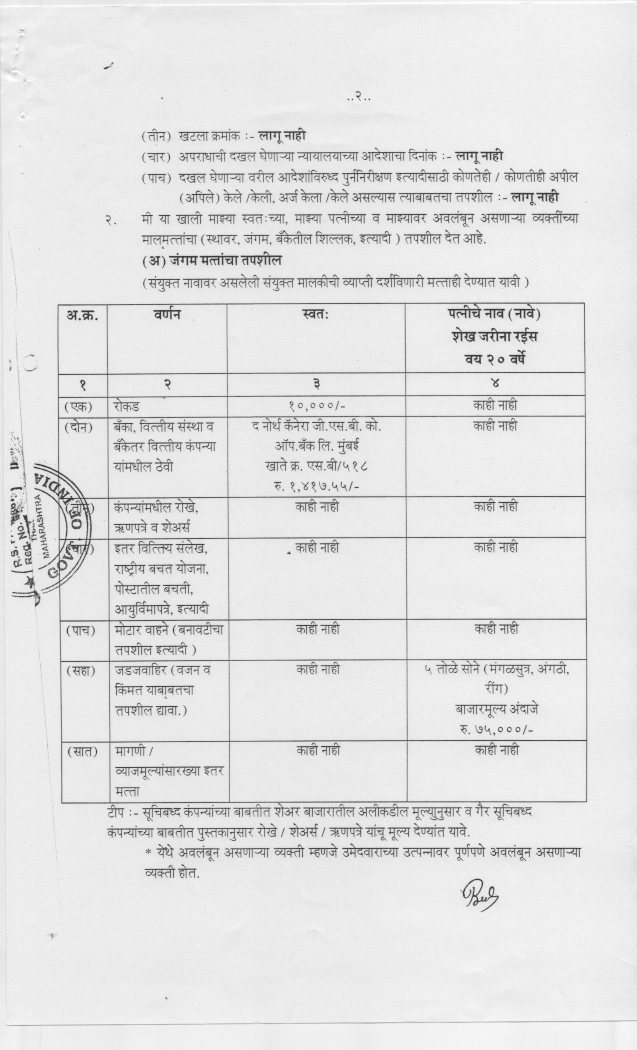 ..२..
(तीन) खटला क्रमांक :- लागू नाही
(चार) अपराधाची दखल घेणाऱ्या न्यायालयाच्या आदेशाचा दिनांक :- लागू नाही
(पाच) दखल घेणाऱ्या वरील आदेशांविरुध्द पुर्ननिरीक्षण इत्यादीसाठी कोणतेही / कोणतीही अपील
(अपिले) केले /केली, अर्ज केला /केले असल्यास त्याबाबतचा तपशील :- लागू नाही
२. मी या खाली माझ्या स्वतःच्या, माझ्या पत्नीच्या व माझ्यावर अवलंबून असणाऱ्या व्यक्तींच्या
मालमत्तांचा (स्थावर, जंगम, बँकेतील शिल्लक, इत्यादी ) तपशील देत आहे.
(अ) जंगम मत्तांचा तपशील
(संयुक्त नावावर असलेली संयुक्त मालकीची व्याप्ती दर्शविणारी मत्ताही देण्यात यावी )
अ.क्र. वर्णन स्वतः पत्नीचे नाव (नावे)
शेख जरीना रईस
वय २० वर्षे
१ २ ३ ४
(एक) रोकड १०,०००/- काही नाही
(दोन) बँका, वित्तीय संस्था व द नोर्थ कॅनेरा जी.एस.बी. को. काही नाही
बँकेतर वित्तीय कंपन्या ऑप.बँक लि. मुंबई
यांमधील ठेवी खाते क्र. एस.बी/५१८
रु. १,४१७.५५/-
(तीन) कंपन्यांमधील रोखे, काही नाही काही नाही
ऋणपत्रे व शेअर्स
(चार) इतर वित्तिय संलेख, काही नाही काही नाही
राष्ट्रीय बचत योजना,
पोस्टातील बचती,
आयुर्विमापत्रे, इत्यादी
(पाच) मोटार वाहने (बनावटीचा काही नाही काही नाही
तपशील इत्यादी )
(सहा) जडजवाहिर (वजन व काही नाही ५ तोळे सोने (मंगळसुत्र, अंगठी,
किंमत याबाबतचा रींग)
तपशील द्यावा.) बाजारमूल्य अंदाजे
रु. ७५,०००/-
(सात) मागणी / काही नाही काही नाही
व्याजमूल्यांसारख्या इतर
मत्ता
टीप :- सूचिबध्द कंपन्यांच्या बाबतीत शेअर बाजारातील अलीकडील मूल्यानुसार व गैर सूचिबध्द
कंपन्यांच्या बाबतीत पुस्तकानुसार रोखे / शेअर्स / ऋणपत्रे यांचू मूल्य देण्यांत यावे.
* येथे अवलंबून असणाऱ्या व्यक्ती म्हणजे उमेदवाराच्या उत्पन्नावर पूर्णपणे अवलंबून असणाऱ्या
व्यक्ती होत.
GOVT. OF INDIA
MAHARASHTRA
Reg. No.